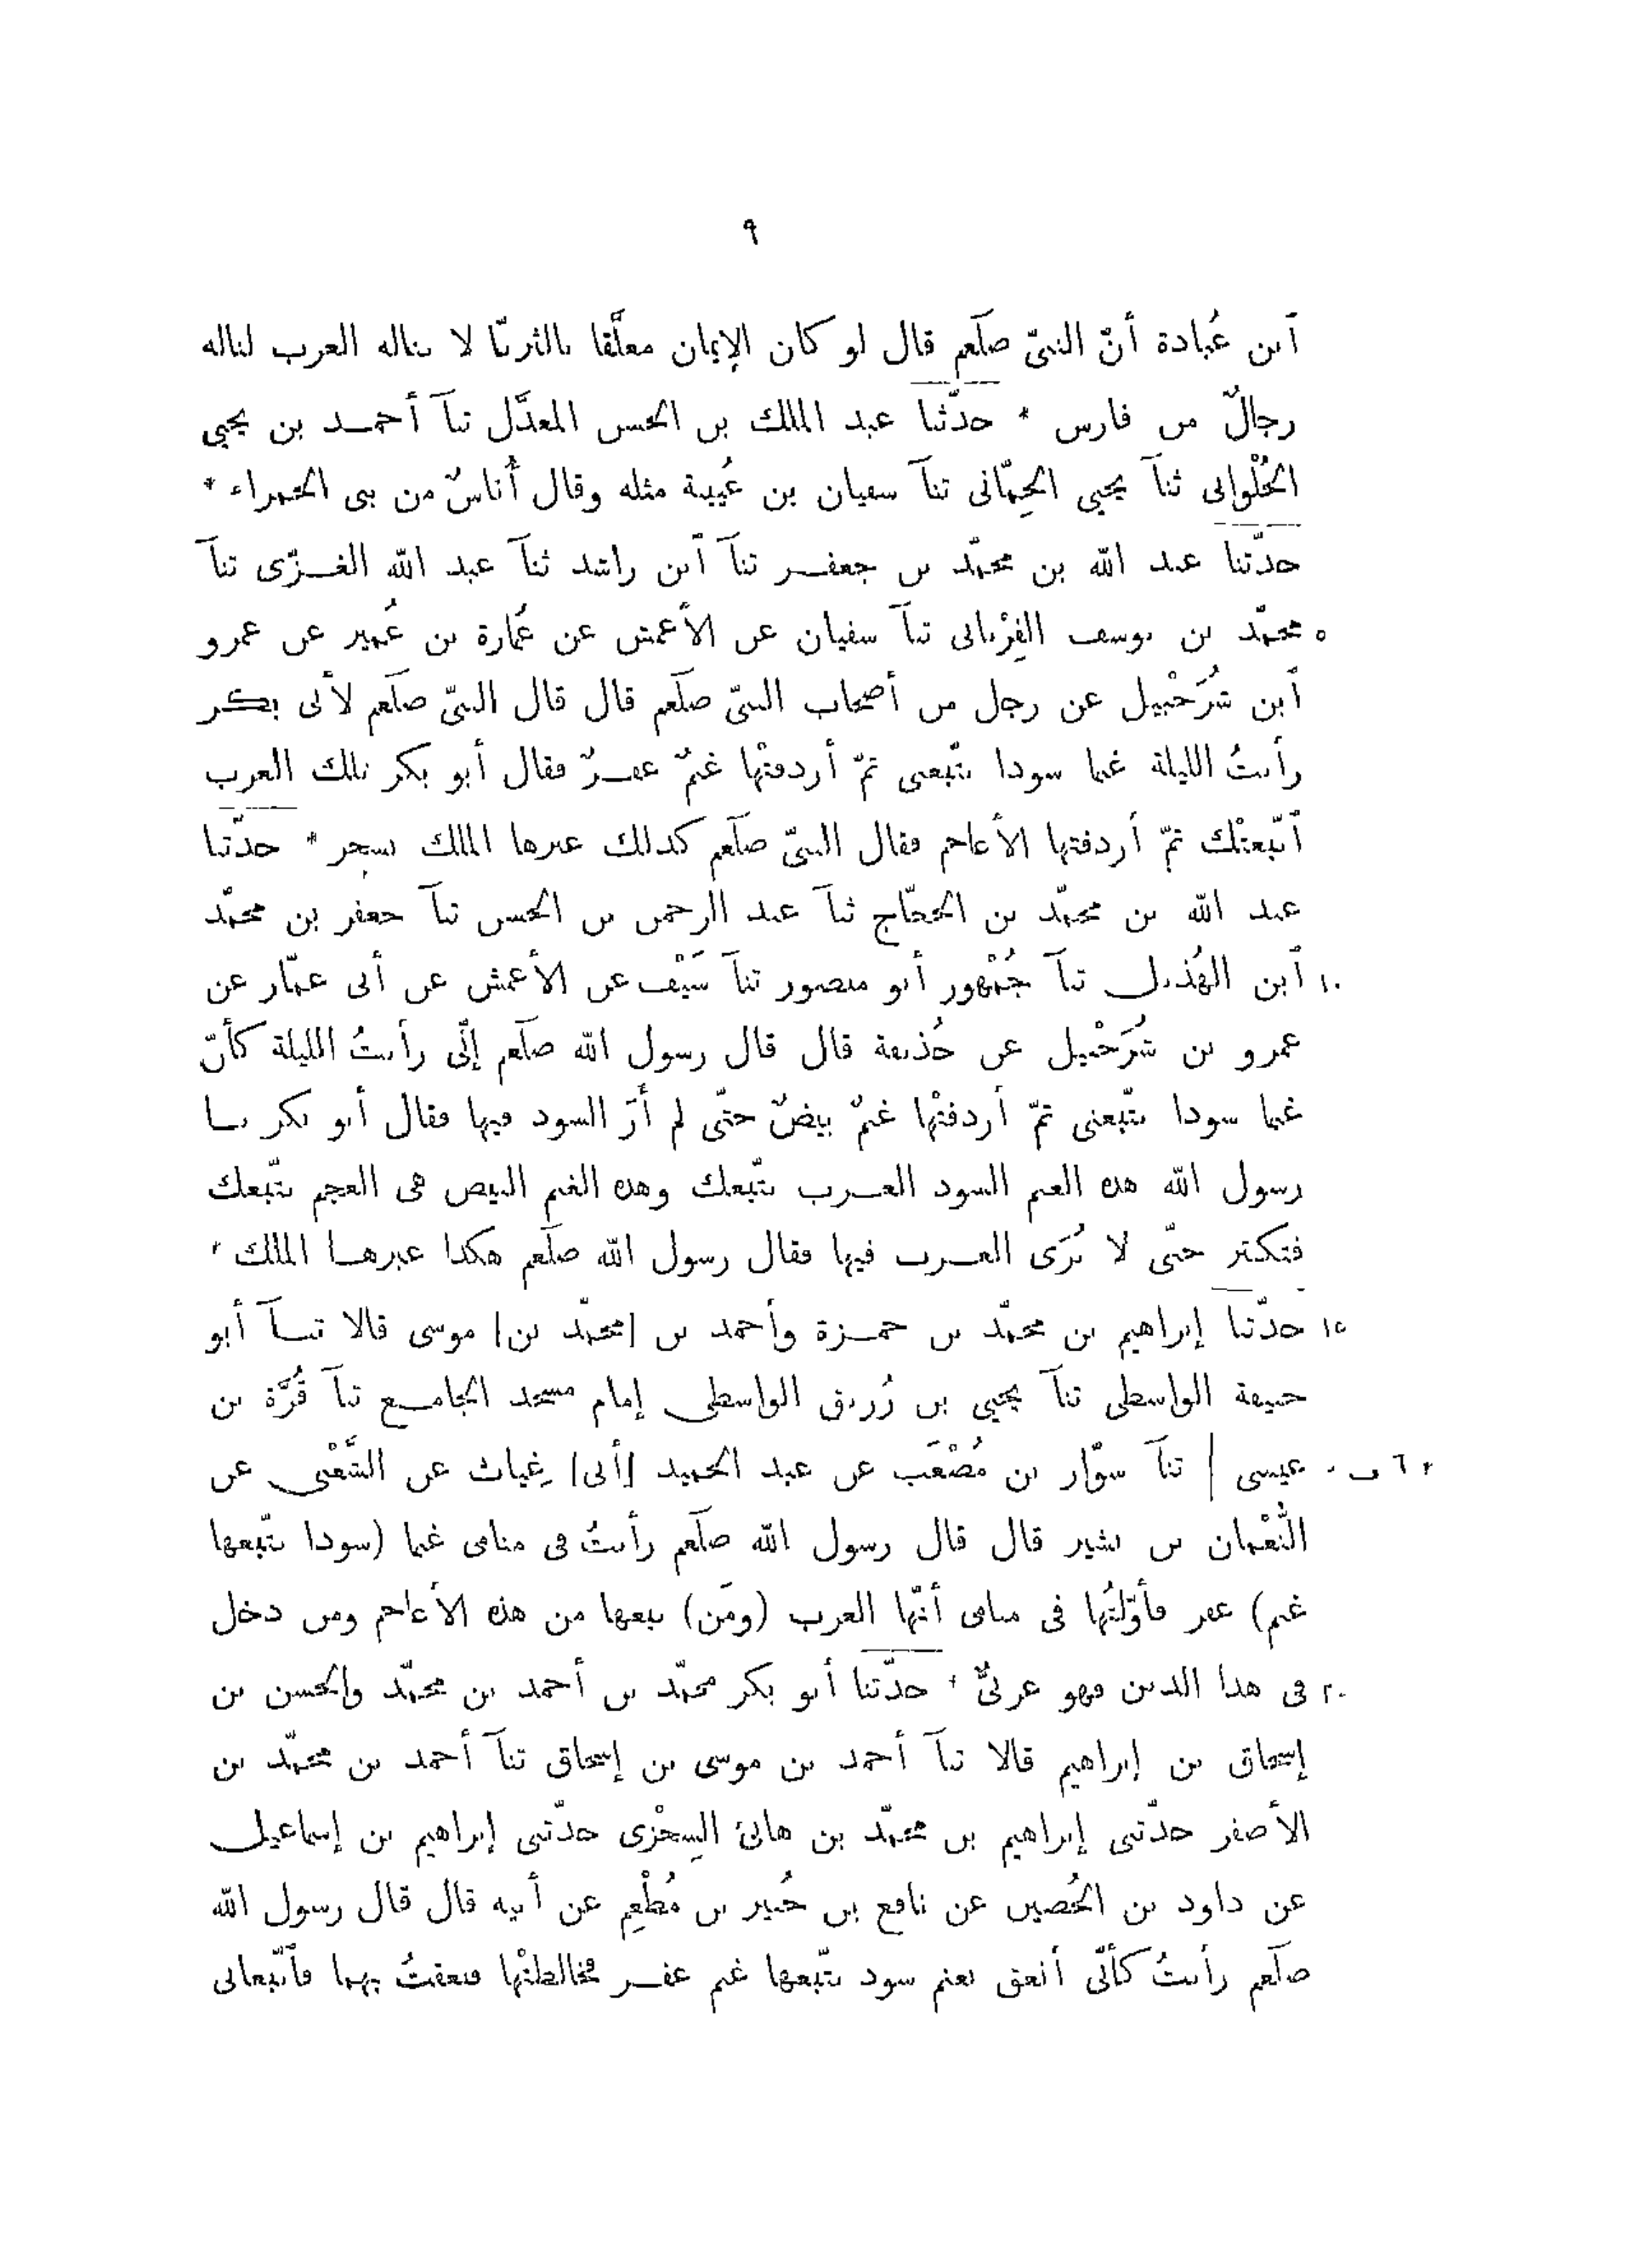 ٩
آبن عُبادة أنّ النبىّ صلّعم قال لو كان الإيمان معلَّقا بالثريّا لا يناله العرب لناله
رجالٌ من فارس * حدّثنا عبد الملك بن الحسن المعدَّل ثنآ أحمد بن يحيى
الحُلْوانى ثنآ يحيى الحِمّانى ثنآ سفيان بن عُيينة مثله وقال أُناسٌ من بنى الحمراء *
حدّثنا عبد الله بن محمّد بن جعفر ثنآ آبن راشد ثنآ عبد الله الغزّى ثنآ
٥ محمّد بن يوسف الفِرْيابى ثنآ سفيان عن الأعمش عن عُمارة بن عُمير عن عمرو
آبن شُرَحْبيل عن رجل من أصحاب النبىّ صلّعم قال قال النبىّ صلّعم لأبى بكر
رأيتُ الليلة غنما سودا تتّبعنى ثمّ أردفتْها غنمٌ عفرٌ فقال أبو بكر تلك العرب
آتّبعتْك ثمّ أردفتها الأعاجم فقال النبىّ صلّعم كذلك عبرها الملك بسحر * حدّثنا
عبد الله بن محمّد بن الحجّاج ثنآ عبد الرحمن بن الحسن ثنآ جعفر بن محمّد
١٠ آبن الهُذيل ثنآ جُمْهور أبو منصور ثنآ سَيْف عن الأعمش عن أبى عمّار عن
عمرو بن شُرَحْبيل عن حُذيفة قال قال رسول الله صلّعم إنّى رأيتُ الليلة كأنّ
غنما سودا تتّبعنى ثمّ أردفتْها غنمٌ بيضٌ حتّى لم أرَ السود فيها فقال أبو بكر يا
رسول الله هذه الغنم السود العرب تتّبعك وهذه الغنم البيض هى العجم تتّبعك
فتكثر حتّى لا تُرَى العرب فيها فقال رسول الله صلّعم هكذا عبرها الملك *
١٥ حدّثنا إبراهيم بن محمّد بن حمزة وأحمد بن [محمّد بن] موسى قالا ثنآ أبو
حنيفة الواسطى ثنآ يحيى بن زُريق الواسطى إمام مسجد الجامع ثنآ قُرَّة بن
٢٦ ب عيسى | ثنآ سوّار بن مُصْعَب عن عبد الحميد [أبى] غِياث عن الشَّعْبى عن
النُّعْمان بن بشير قال قال رسول الله صلّعم رأيتُ فى منامى غنما (سودا تتّبعها
غنم) عفر فأوّلتُها فى منامى أنّها العرب (ومَن) يتبعها من هذه الأعاجم ومن دخل
٢٠ فى هذا الدين فهو عربىٌّ * حدّثنا أبو بكر محمّد بن أحمد بن محمّد والحسن بن
إسحاق بن إبراهيم قالا ثنآ أحمد بن موسى بن إسحاق ثنآ أحمد بن محمّد بن
الأصفر حدّثنى إبراهيم بن محمّد بن هانئ السِجْزى حدّثنى إبراهيم بن إسماعيل
عن داود بن الحُصين عن نافع بن جُبير بن مُطْعِم عن أبيه قال قال رسول الله
صلّعم رأيتُ كأنّى أنعق بغنم سود تتّبعها غنم عفر فخالطتْها فنعقتُ بهما فآتّبعانى